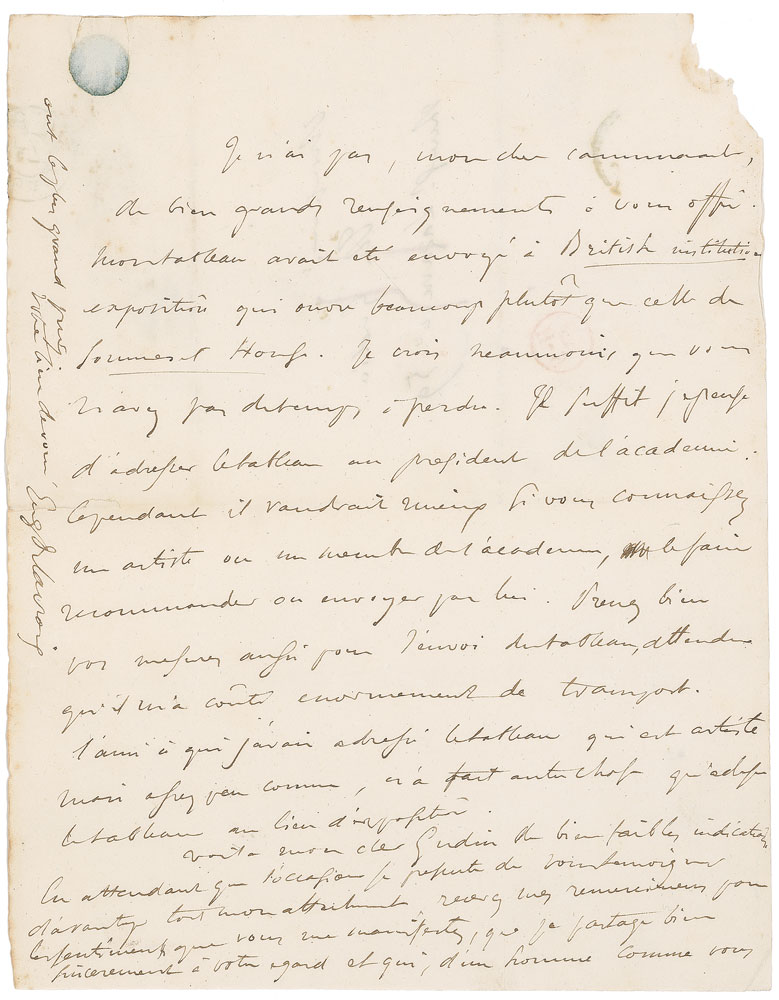 Je n'ai pas, mon cher commandant,
de bien grands renseignements à vous offrir.
Mon tableau avait été envoyé à British institution
exposition qui ouvre beaucoup plutôt que celle de
Sommerset House. Je crois neanmoins que vous
n'avez pas de temps à perdre. Il suffit je pense
d'adresser le tableau au president de l'académie.
Cependant il vaudrait mieux si vous connaissez
un artiste ou un membre de l'académie, le faire
recommander ou envoyer par lui. Prenez bien
vos mesures aussi pour l'envoi du tableau, attendu
qu'il m'a coûté enormement de transport.
L'ami à qui j'avais adressé le tableau qui est artiste
mais assez peu connu, n'a fait autre chose qu'adresser
le tableau au lieu d'exposition.
Voila mon cher Gudin de bien faibles indications.
En attendant que l'occasion se présente de vous temoigner
d'avantage tout mon attachement recevez mes remerciemens pour
les sentiments que vous me manifestez, que je partage bien
sincerement à votre egard et qui, d'un homme comme vous
ont le plus grand prix
Votre bien devoué Eug Delacroix